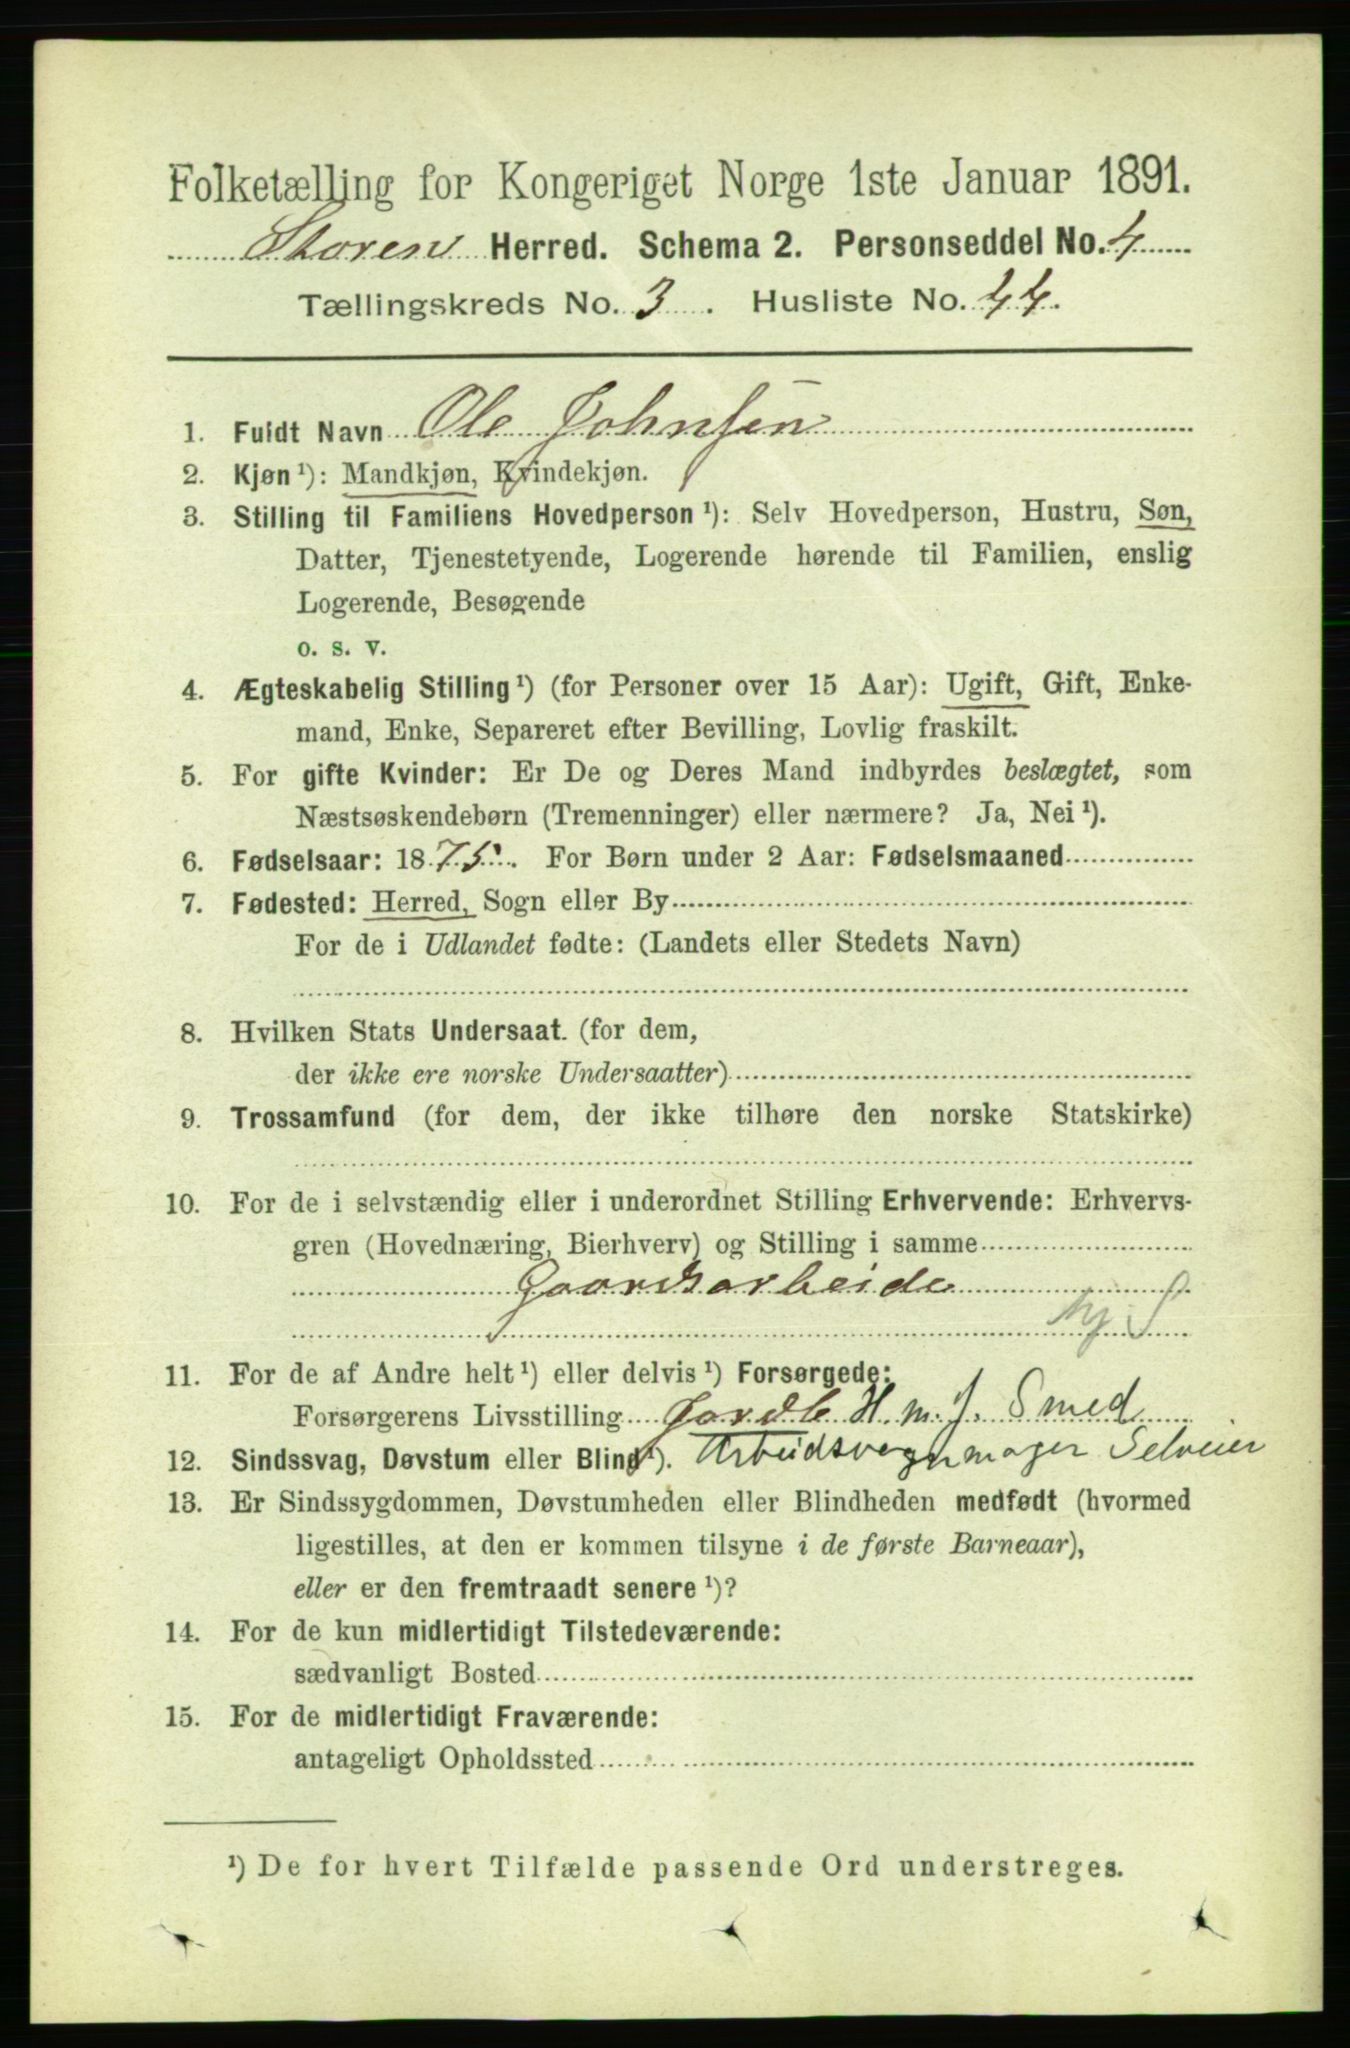 Folketælling for Kongeriget Norge 1ste Januar 1891.
Støren Herred. Schema 2. Personseddel No. 4
Tællingskreds No. 3. Husliste No. 44.
1. Fuldt Navn Ole Johnsen
2. Kjøn ¹): Mandkjøn, Kvindekjøn.
3. Stilling til Familiens Hovedperson ¹): Selv Hovedperson, Hustru, Søn,
Datter, Tjenestetyende, Logerende hørende til Familien, enslig
Logerende, Besøgende
o. s. v.
4. Ægteskabelig Stilling ¹) (for Personer over 15 Aar): Ugift, Gift, Enke-
mand, Enke, Separeret efter Bevilling, Lovlig fraskilt.
5. For gifte Kvinder: Er De og Deres Mand indbyrdes beslægtet, som
Næstsøskendebørn (Tremenninger) eller nærmere? Ja, Nei ¹).
6. Fødselsaar: 1875. For Børn under 2 Aar: Fødselsmaaned
7. Fødested: Herred, Sogn eller By
For de i Udlandet fødte: (Landets eller Stedets Navn)
8. Hvilken Stats Undersaat. (for dem,
der ikke ere norske Undersaatter)
9. Trossamfund (for dem, der ikke tilhøre den norske Statskirke)
10. For de i selvstændig eller i underordnet Stilling Erhvervende: Erhvervs-
gren (Hovednæring, Bierhverv) og Stilling i samme
Gaardsarbeide
11. For de af Andre helt ¹) eller delvis ¹) Forsørgede:
Forsørgerens Livsstilling Jordb H. m. J. Smed
12. Sindssvag, Døvstum eller Blind ¹). Arbeidsvognmager Selveier
13. Er Sindssygdommen, Døvstumheden eller Blindheden medfødt (hvormed
ligestilles, at den er kommen tilsyne i de første Barneaar),
eller er den fremtraadt senere ¹)?
14. For de kun midlertidigt Tilstedeværende:
sædvanligt Bosted
15. For de midlertidigt Fraværende:
antageligt Opholdssted
¹) De for hvert Tilfælde passende Ord understreges.